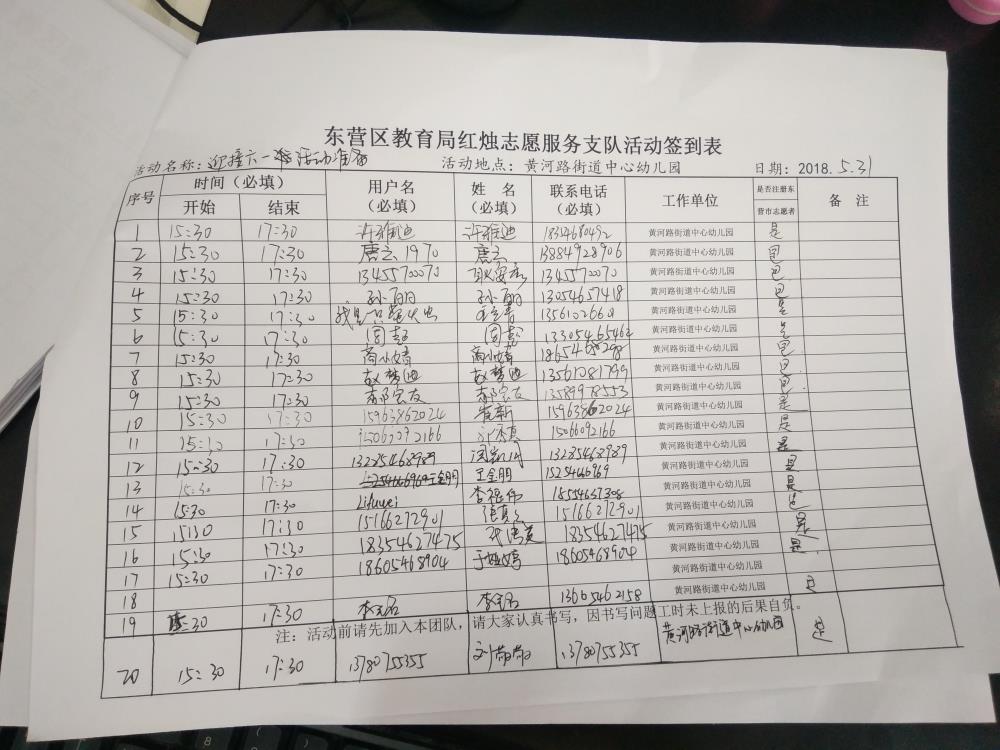 东营区教育局红烛志愿服务支队活动签到表
活动名称：迎接六一 活动准备 活动地点：黄河路街道中心幼儿园 日期：2018.5.31
序号 时间（必填） 用户名（必填） 姓 名（必填） 联系电话（必填） 工作单位 是否注册东营市志愿者 备 注
开始 结束
1 15:30 17:30 许雅迪 许雅迪 黄河路街道中心幼儿园 是
2 15:30 17:30 唐云1970 唐云 13884928906 黄河路街道中心幼儿园 是
3 15:30 17:30 13455770070 13455770070 黄河路街道中心幼儿园 是
4 15:30 17:30 孙丽丽 孙丽丽 13054657418 黄河路街道中心幼儿园 是
5 15:30 17:30 我是一只萤火虫 13561026601 黄河路街道中心幼儿园 是
6 15:30 17:30 13305465462 黄河路街道中心幼儿园 是
7 15:30 17:30 商小婧 商小婧 黄河路街道中心幼儿园 是
8 15:30 17:30 赵梦迪 赵梦迪 13561081799 黄河路街道中心幼儿园 是
9 15:30 17:30 郝宗友 郝宗友 13589978553 黄河路街道中心幼儿园 是
10 15:30 17:30 15963862024 崔新 15963862024 黄河路街道中心幼儿园 是
11 17:30 15066092166 黄河路街道中心幼儿园 是
12 15:30 17:30 13285468989 13285468989 黄河路街道中心幼儿园 是
13 15:30 17:30 王金朋 王金朋 黄河路街道中心幼儿园 是
14 15:30 17:30 李纪伟 18554657308 黄河路街道中心幼儿园 是
15 15:30 17:30 15166272901 15166272901 黄河路街道中心幼儿园 是
16 15:30 17:30 18354627475 18354627475 黄河路街道中心幼儿园 是
17 15:30 17:30 18605468904 于婷婷 18605468904 黄河路街道中心幼儿园 是
18 黄河路街道中心幼儿园
19 17:30 13665462158 黄河路街道中心幼儿园 是
注：活动前请先加入本团队，请大家认真书写，因书写问题工时未上报的后果自负。
20 15:30 17:30 13780755355 刘萌萌 13780755355 黄河路街道中心幼儿园 是